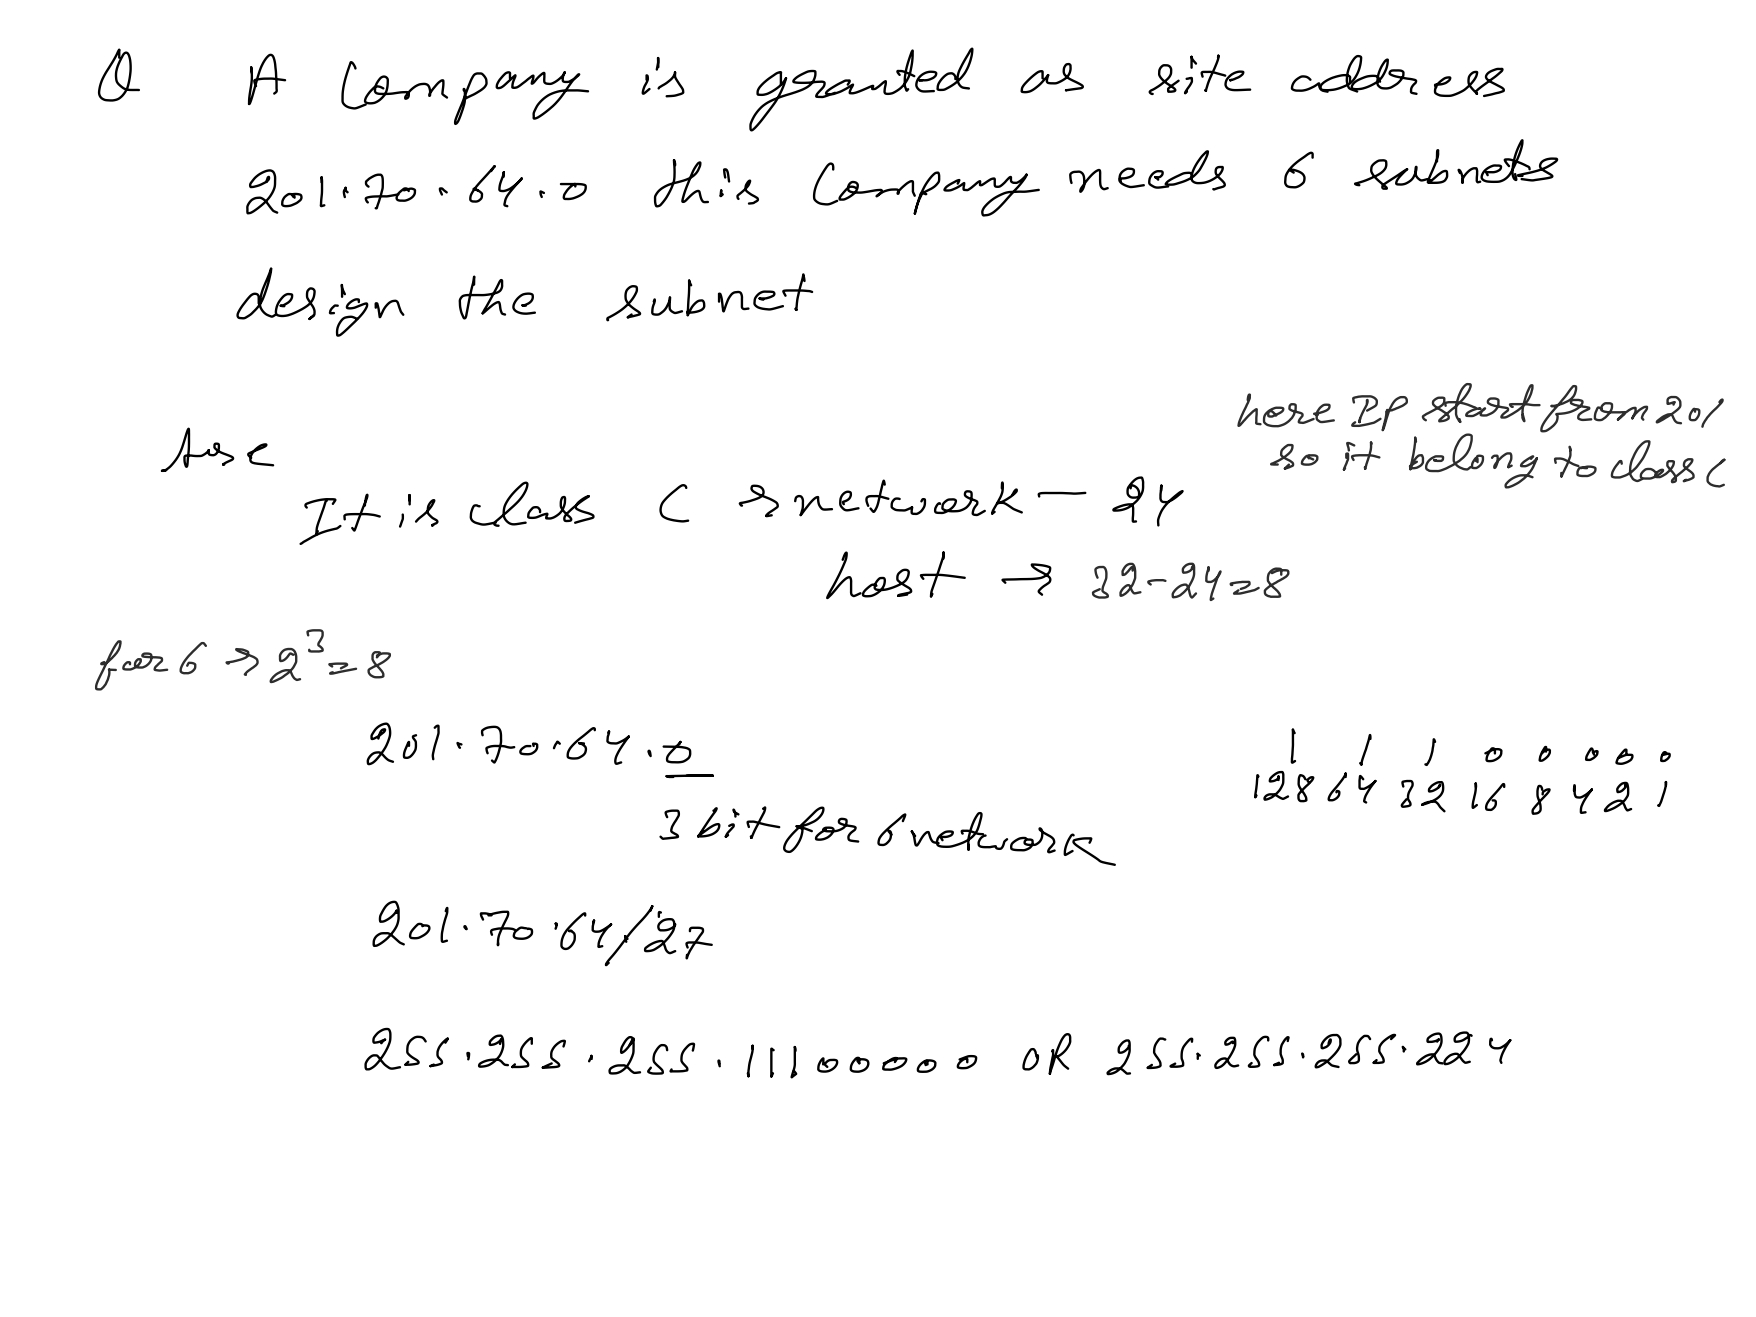 Q A Company is granted as site address
201.70.64.0 this Company needs 6 subnets
design the subnet
here IP start from 201
so it belong to class C
It is class C → network - 24
host → 32-24=8
for 6 → 2³=8
201.70.64.0
1 1 1 0 0 0 0 0
128 64 32 16 8 4 2 1
3 bit for 6 network
201.70.64/27
255.255.255.11100000 OR 255.255.255.224